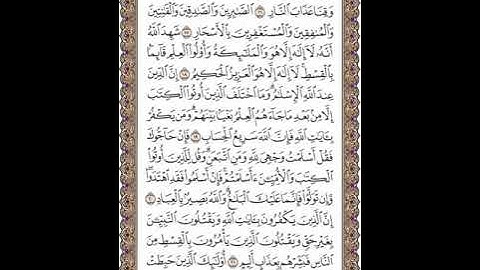 وَقِنَا عَذَابَ ٱلنَّارِ ١٦ ٱلصَّٰبِرِينَ وَٱلصَّٰدِقِينَ وَٱلْقَٰنِتِينَ
وَٱلْمُنفِقِينَ وَٱلْمُسْتَغْفِرِينَ بِٱلْأَسْحَارِ ١٧ شَهِدَ ٱللَّهُ
أَنَّهُۥ لَآ إِلَٰهَ إِلَّا هُوَ وَٱلْمَلَٰٓئِكَةُ وَأُو۟لُوا۟ ٱلْعِلْمِ قَآئِمًۢا
بِٱلْقِسْطِ ۚ لَآ إِلَٰهَ إِلَّا هُوَ ٱلْعَزِيزُ ٱلْحَكِيمُ ١٨ إِنَّ ٱلدِّينَ
عِندَ ٱللَّهِ ٱلْإِسْلَٰمُ ۗ وَمَا ٱخْتَلَفَ ٱلَّذِينَ أُوتُوا۟ ٱلْكِتَٰبَ
إِلَّا مِنۢ بَعْدِ مَا جَآءَهُمُ ٱلْعِلْمُ بَغْيًۢا بَيْنَهُمْ ۗ وَمَن يَكْفُرْ
بِـَٔايَٰتِ ٱللَّهِ فَإِنَّ ٱللَّهَ سَرِيعُ ٱلْحِسَابِ ١٩ فَإِنْ حَآجُّوكَ
فَقُلْ أَسْلَمْتُ وَجْهِىَ لِلَّهِ وَمَنِ ٱتَّبَعَنِ ۗ وَقُل لِّلَّذِينَ أُوتُوا۟
ٱلْكِتَٰبَ وَٱلْأُمِّيِّـۧنَ ءَأَسْلَمْتُمْ ۚ فَإِنْ أَسْلَمُوا۟ فَقَدِ ٱهْتَدَوا۟ ۖ
وَّإِن تَوَلَّوْا۟ فَإِنَّمَا عَلَيْكَ ٱلْبَلَٰغُ ۗ وَٱللَّهُ بَصِيرٌۢ بِٱلْعِبَادِ ٢٠
إِنَّ ٱلَّذِينَ يَكْفُرُونَ بِـَٔايَٰتِ ٱللَّهِ وَيَقْتُلُونَ ٱلنَّبِيِّـۧنَ
بِغَيْرِ حَقٍّ وَيَقْتُلُونَ ٱلَّذِينَ يَأْمُرُونَ بِٱلْقِسْطِ مِنَ
ٱلنَّاسِ فَبَشِّرْهُم بِعَذَابٍ أَلِيمٍ ٢١ أُو۟لَٰٓئِكَ ٱلَّذِينَ حَبِطَتْ